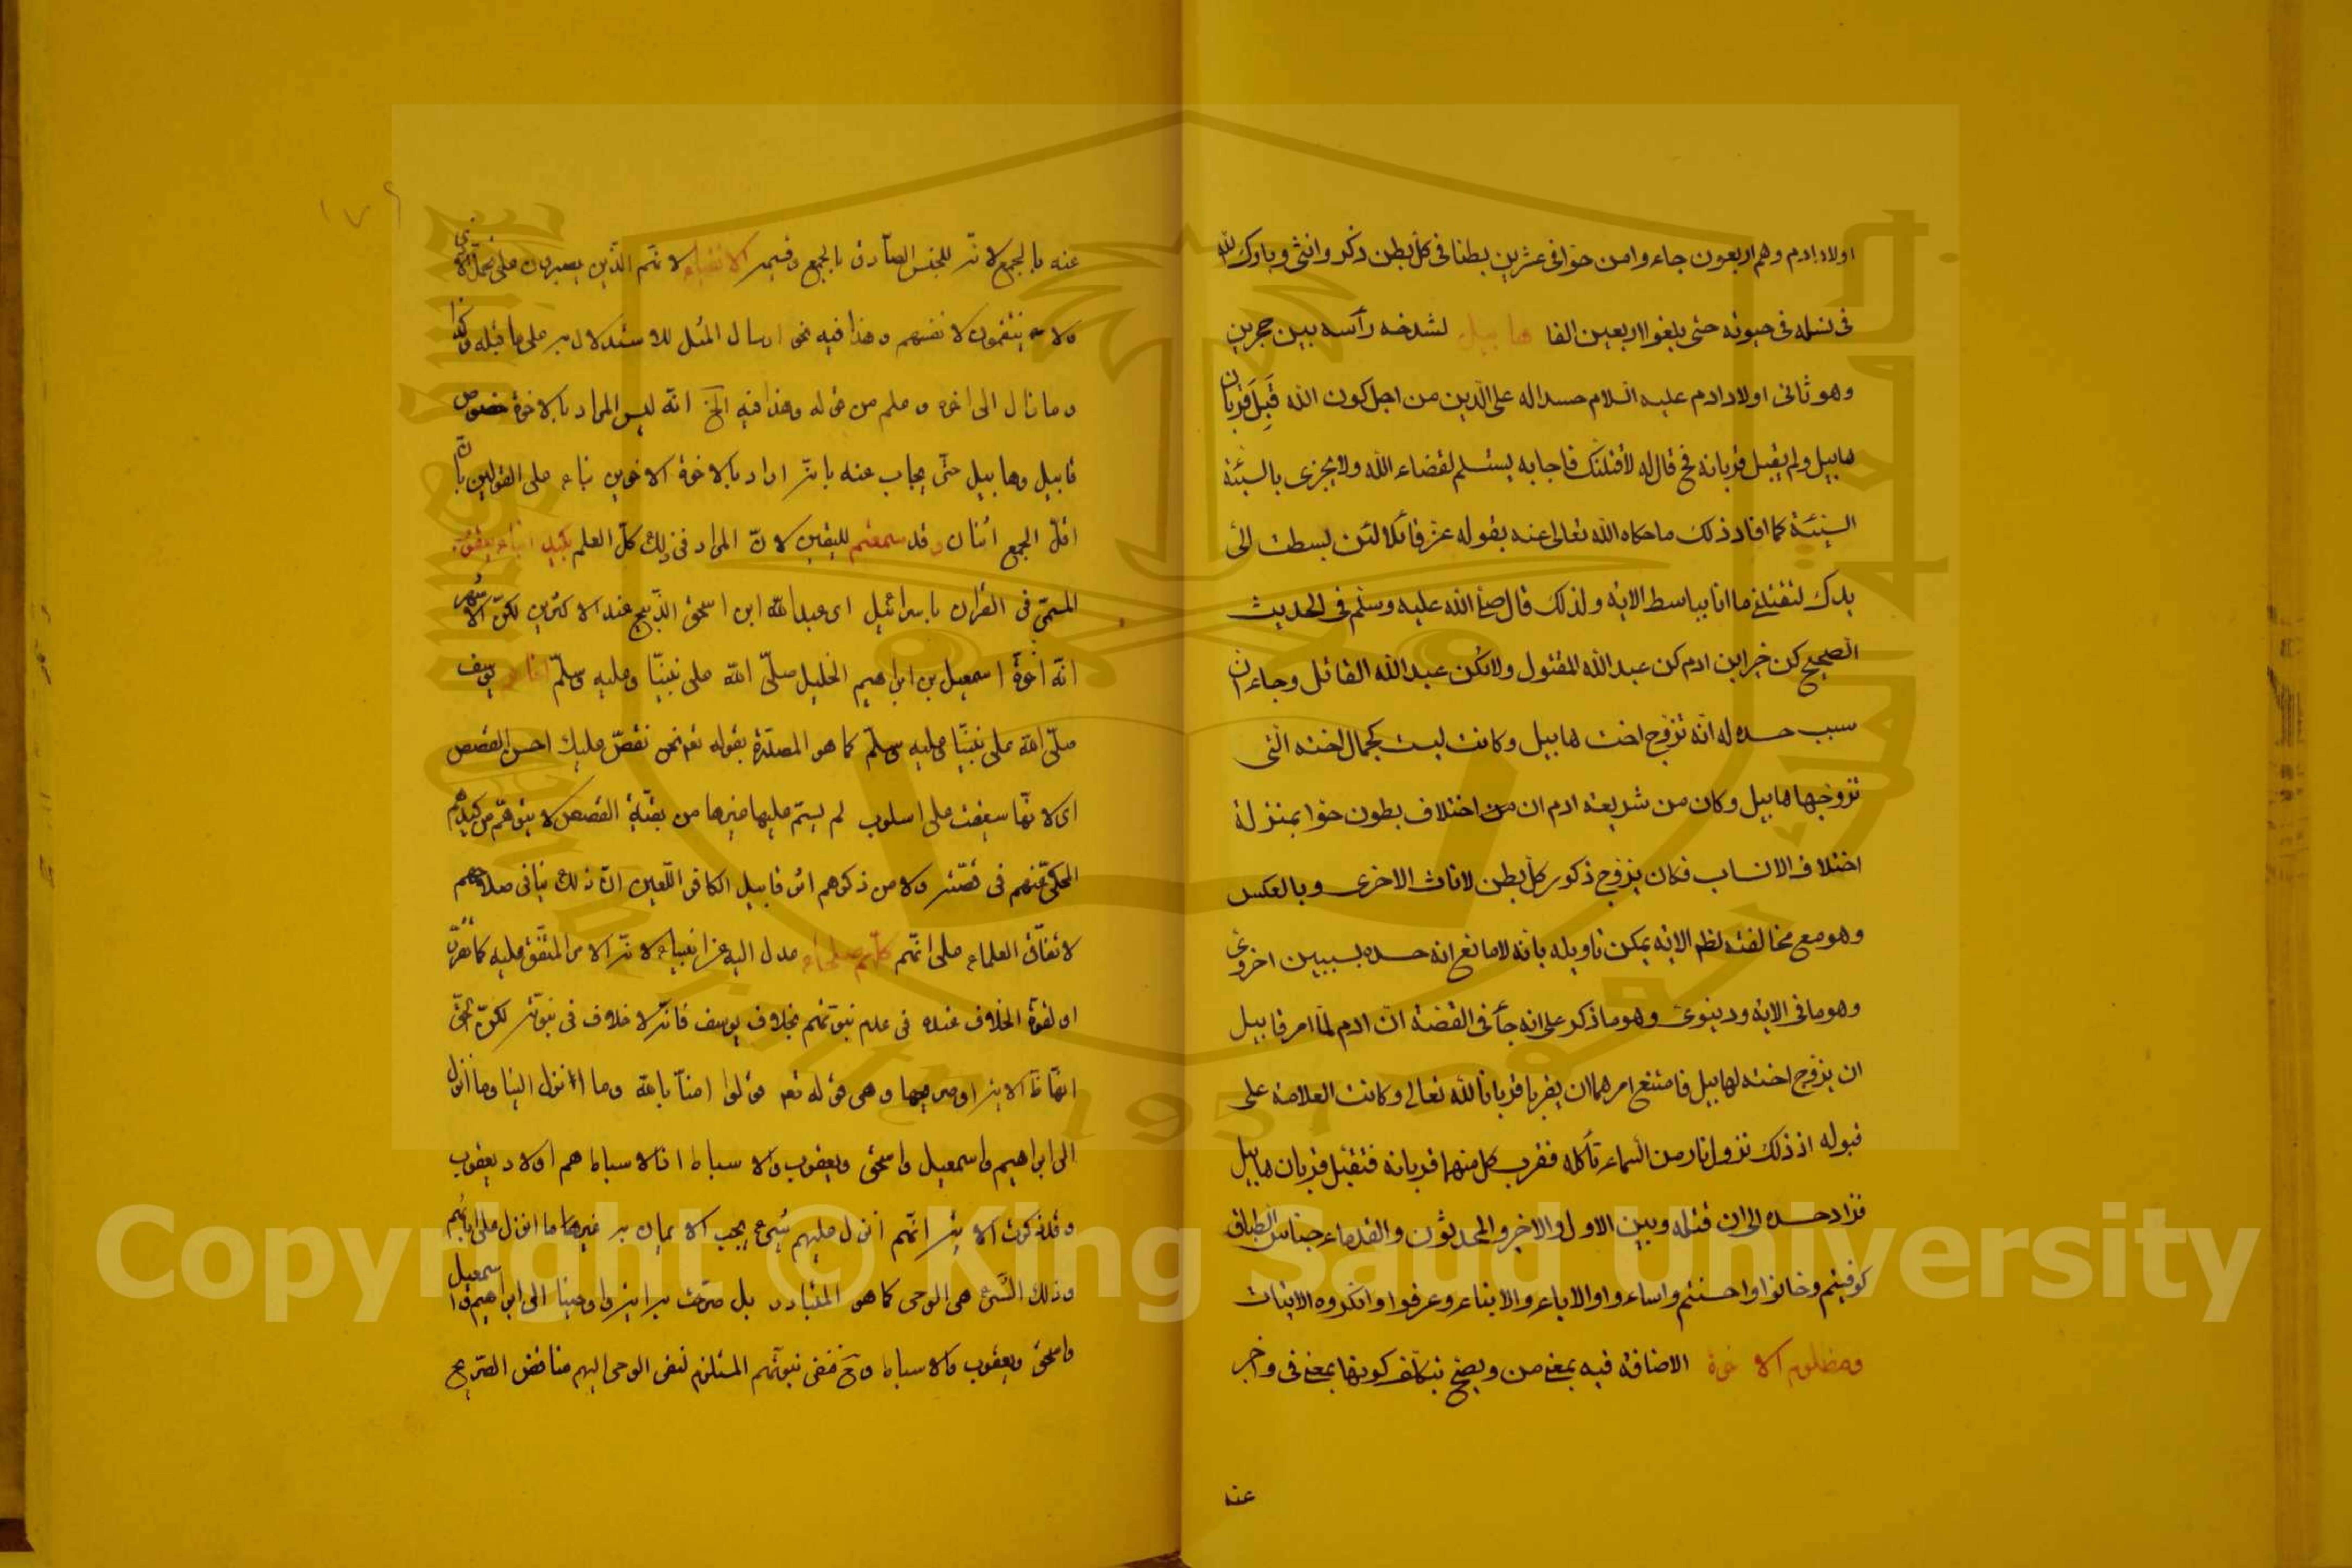 اولاد ادم وهم اربعون جاءوا من حوا فى عشرين بطنا فى كل بطن ذكر وانثى وبارك الله
فى نسله فى حيوته حتى بلغوا اربعين الفا هابيل لشدخه رأسه بين حجرين
وهو ثانى اولاد ادم عليه السلام حسدا له على الدين من اجل كون الله قَبِلَ قربان
هابيل ولم يقبل قربانه فح قال له لأقتلنك فاجابه يستسلم لقضاء الله ولا يجزى بالسيئة
السيئة كما افاد ذلك ما حكاه الله تعالى عنه بقوله عز قائلا لئن بسطت الى
يدك لتقتلنى ما انا بباسط الاية ولذلك قال صلى الله عليه وسلم فى الحديث
الصحيح كن خير ابن ادم كن عبد الله المقتول ولا تكن عبد الله القاتل وجاء ان
سبب حسده له انه تزوج اخت هابيل وكانت ليست كجمال اخته التى
تزوجها هابيل وكان من شريعة ادم ان من اختلاف بطون حوا بمنزلة
اختلاف الانساب فكان يزوج ذكور كل بطن لاناث الاخرى وبالعكس
وهو مع مخالفته لظم الاية يمكن تاويله بانه لا مانع انه حسده بسببين اخروى
وهو ما فى الاية ودنيوى وهو ما ذكر على انه جأ فى القصة ان ادم لما امر قابيل
ان يزوج اخته لهابيل فامتنع امرهما ان يقربا قربانا لله تعالى وكانت العلامة على
قبوله اذ ذلك نزول نار من السماء تأكله فقرب كل منهما قربانه فتقبل قربان هابيل
فزاد حسده الى ان قتله وبين الاول والاخر والمحدثون والقدماء جناس الطباق
كوفيتم وخانوا واحسنتم واساءوا والاباء والابناء وعرفوا وانكروه الاثبات
ومظلوم الاخوة الاضافة فيه بمعنى من ويصح بتكلف كونها بمعنى فى واخبر
عنه
١٧٩
عنه بالجمع لانه للجنس الصادق بالجمع وقيمه الاتقياء لانهم الذين يصبرون على تحمل الاذى
ولا ينتقمون لانفسهم وهذا فيه نحو ارسال المثل للاستدلال به على ما قبله وكذا
وما نال الى اخره وعلم من قوله وهذا فيه الخ انه ليس المراد بالاخوة خصوص
قابيل وهابيل حتى يجاب عنه بانه اراد بالاخوة الاخوين بناء على القولين بان
اقل الجمع اثنان وقد سمعتم لليقين لان المراد فى ذلك كل العلم بكيد ابناء يعقوب
المسمى فى القران باسرائيل اى عبد الله ابن اسحق الذبيح عند الاكثرين لكن الاشهر
انه اخوه اسمعيل بن ابراهيم الخليل صلى الله على نبينا وعليه وسلم اخاهم يوسف
صلى الله على نبينا وعليه وسلم كما هو المصدرة بقوله تعالى نحن نقص عليك احسن القصص
اى لانها سيقت على اسلوب لم يستم عليها غيرها من بقية القصص لا يتوهم من كيدهم
المحكى عنهم فى قصته ولا من ذكرهم اثر قابيل الكافر اللعين ان ذلك ينافى صلاحهم
لاتفاق العلماء على انهم كلهم صلحاء عدل اليه عن انبياء لانه الامر المتفق عليه كما تقرر
او لقوة الخلاف عنده فى عدم نبوتهم بخلاف يوسف فانه لا خلاف فى نبوته لكن الحق
انها ظ الاية او صريحها وهى قوله تعالى قولوا امنا بالله وما انزل الينا وما انزل
الى ابراهيم واسمعيل واسحق ويعقوب والاسباط اذ الاسباط هم اولاد يعقوب
وقد ذكرت الاية انهم انزل عليهم شىء يجب الايمان به غير ما انزل على ابائهم
وذلك الشىء هو الوحى كما هو المتبادر بل صرحت به اية واوحينا الى ابراهيم واسمعيل
واسحق ويعقوب والاسباط وح فنفى نبوتهم المستلزم لنفى الوحى اليهم مناقض الصريح